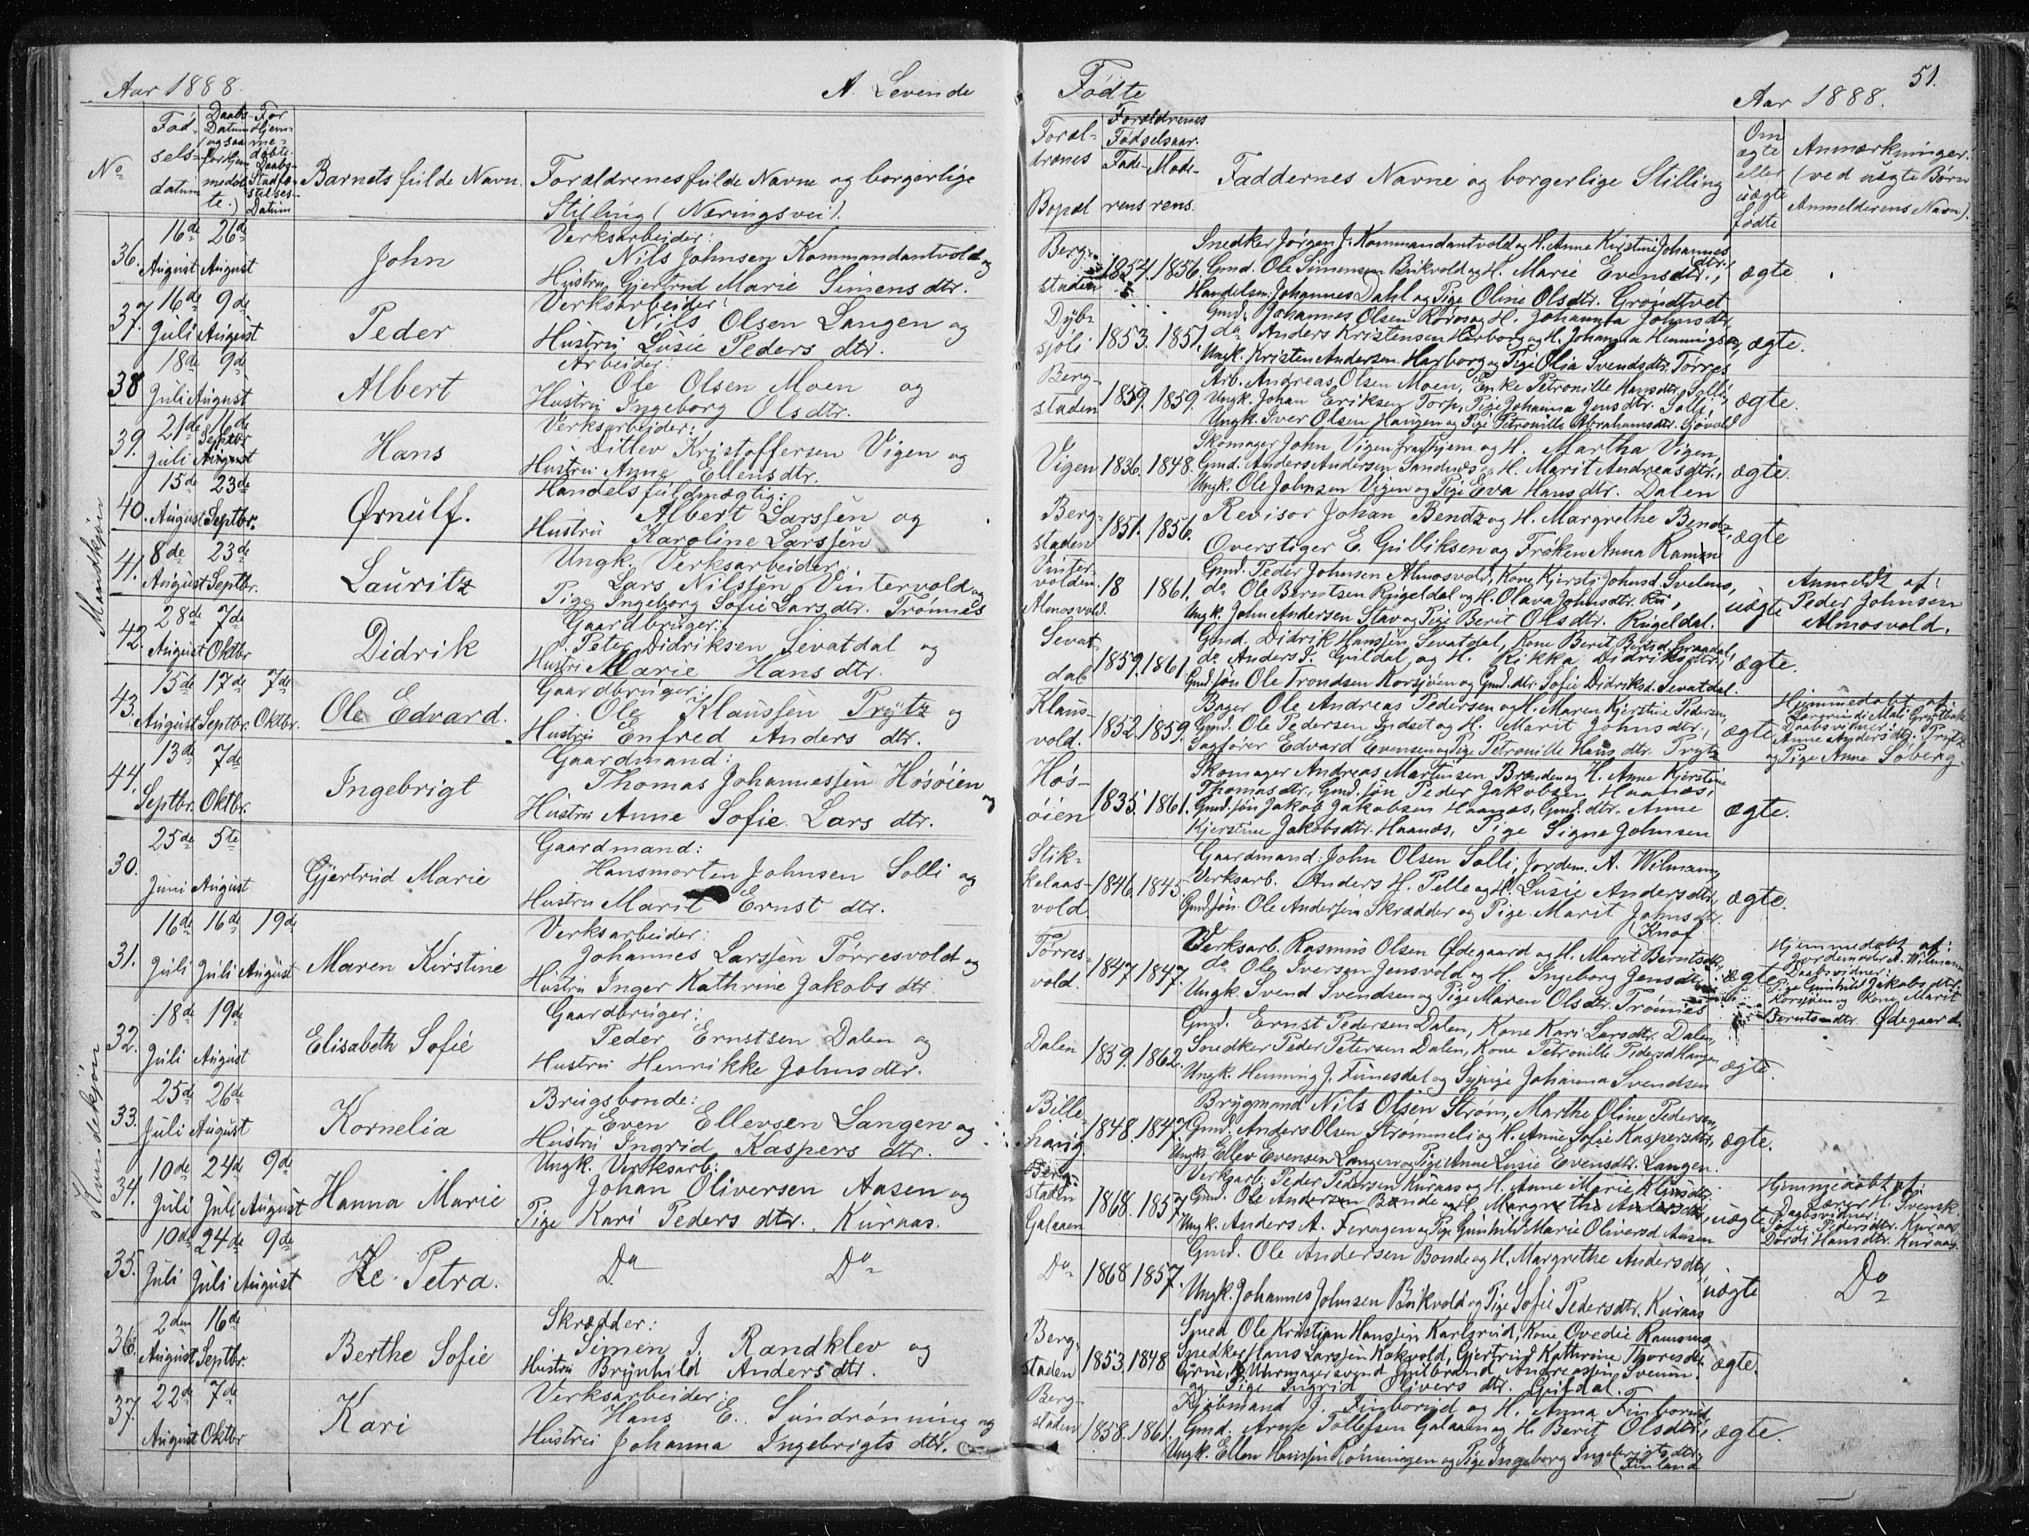 Aar 1888.
A. Levende
Fødte
Aar 1888.
51.
No
Fød-
sels-
datum
Daabs-
Datum
(ogsaa
for hjem
medøb-
te.)
For
Hjem-
me-
døbte:
Daabs-
Stadfæ-
stelses-
Datum
Barnets fulde Navn.
Forældrenes fulde Navne og borgerlige
Stilling (Næringsvei).
Foræl-
drenes
Bopæl
Forældrenes
Fødselsaar.
Fade-
rens
Mode-
rens.
Faddernes Navne og borgerlige Stilling
Om
ægte
eller
uægte
fødte
Anmærkninger.
(ved uægte Børn
Anmelderens Navn).
Mandkjøn
36.
16de August
26de August
John
Verksarbeider:
Nils Johnsen Kommandantvold og
Hustru Gjertrud Marie Simensdtr.
Berg-
staden
1854. 1856.
Snedker Jørgen J. Kommandantvold og H. Anne Kirstine Johannes
dtr.,
Gmd. Ole Simensen Bukvold og H. Marie Evensdtr.,
Handelsm: Johannes Dahl og Pige Oline Olsdtr. Grøndtvet
ægte
37.
16de Juli
9de August
Peder
Verksarbeider:
Nils Olsen Langen og
Hustru Lusie Peders dtr.
Dyb-
sjøli
1853. 1851.
Gmd. Johannes Olsen Røros og H. Johanna Johnsdtr.,
do Anders Kristensen Harborg og H. Johanna Hemmingsen,
Ungk. Kristen Andersen Harborg og Pige Olia Svendsdtr. Tørres
ægte.
38
18de Juli
9de August
Albert
Arbeider:
Ole Olsen Moen og
Hustru Ingeborg Olsdtr.
Berg-
staden
1859. 1859.
Arb. Andreas Olsen Moen, Enke Petronille Hansdtr. Solli,
Ungk. Johan Eriksen Torp, Pige Johanna Jensdtr. Solli
Ungk. Iver Olsen Haugen og Pige Petronille Abrahamsdtr. Sjøvold
ægte.
39.
21de Juli
16de Septbr
August
Hans
Verksarbeider:
Ditlev Kristoffersen Vigen og
Hustru Anne Ellensdtr.
Vigen
1836. 1848.
Skomager John Vigen fra Hjem. og H. Martha Vigen,
Gmd. Anders Andersen Sandnes og H. Marit Andreasdtr.,
Ungk. Ole Johnsen Vigen og Pige Eva Hansdtr. Dalen
ægte.
40.
15de August
23de Septbr.
Ørnulf.
Handelsfuldmægtig:
Albert Larssen og
Hustru Karoline Larssen
Berg-
staden
1851. 1856.
Revisor Johan Bendz og H. Margrethe Bendz,
Overstiger E. Gulliksen og Frøken Anna Ramm
ægte
41.
8de August
23de Septbr.
Lauritz
Ungk. Verksarbeider
Lars Nilssen Vintervold og
Pige Ingeborg Sofie Larsdtr. Trømnes
Vinter-
volden.
Almosvold.
18 1861.
Gmd. Peder Johnsen Almosvold, Kone Kjersti Johnsd. Svelmo,
do Ole Berntsen Rugeldal og H. Olava Johnsdtr. Ru,
Ungk. John Andersen Stav og Pige Berit Olsdtr. Rugeldal.
uægte
Anmeldt af:
Peder Johnsen
Almosvold.
42.
28de August
7de Oktbr
Didrik
Gaardbruger:
Peter Didriksen Sevatdal og
Hustru Marie Hansdtr.
Sevat
dal
1859. 1861.
Gmd. Didrik Hanssen Sevatdal, Kone Berit
do Anders J. Guldal, og H. Rikka Didriksdtr.,
Gmd.søn Ole Trondsen Korsjøen og Gmd.dtr. Sofie Didriksd. Sevatdal.
ægte.
43.
15de August
17de Septbr.
7de Oktbr.
Ole Edvard.
Gaardbruger:
Ole Klaussen Prytz og
Hustru Enfred Anders dtr.
Klaus-
vold.
1852. 1859.
Bager Ole Andreas Pedersen og H. Maren Kjerstine Pedersen,
Gmd. Ole Pedersen Indset og H. Marit Johnsdtr.,
Sagfører Edvard Evensen og Pige Petronille Hansdtr. Prytz
ægte.
Hjemmedøbt af:
Daabsvidner:
Anne Andersdtr. Prytz
og Pige Anne Søberg.
44.
13de Septbr.
7de Oktbr.
Ingebrigt
Gaardmand:
Thomas Johannessen Høsøien og
Hustru Anne Sofie Lars dtr.
Høs-
øien
1835. 1861.
Skomager Andreas Martinsen Brænden og H. Anne Kjerstine
Thomasdtr., Gmd.søn Peder Jakobsen Haanæs,
Gmd.søn Jakob Jakobsen Haanæs, Gmd.dtr. Anne
Kjerstine Jakobsdtr. Haanæs, Pige Signe Johnsen
ægte.
Kvindekjøn
30.
25de Juni
5te August
Gjertrud Marie
Gaardmand:
Hansmorten Johnsen Solli og
Hustru Marit Ernst dtr.
Stik-
kelaas-
vold
1846. 1845.
Gaardmand: John Olsen Solli, Jordem. A. Wilmann,
Verksarb. Anders H. Pelle og H. Lusie Andersdtr.,
Gmd.søn. Ole Anderssen Skrædder og Pige Marit Johnsdtr.
(Knof
ægte.
31.
16de Juli
16de Juli
19de August
Maren Kirstine
Verksarbeider:
Johannes Larssen Tørresvold og
Hustru Inger Kathrine Jakobs dtr.
Tørres-
vold.
1847. 1847.
Verksarb. Rasmus Olsen Ødegaard og H. Marit Berntsdtr.,
do Ole Iversen Jensvold og H. Ingeborg Jensdtr.
Ungk. Svend Svendsen og Pige Maren Olsdtr. Trømnes
ægte
Hjemmedøbt af:
Jordemoder A. Wilmann
Daabsvidner:
Pige Gunhild Jakobsdtr.
Korsjøen og Kone Marit
Berntsdtr. Ødegaard.
32.
18de Juli
19de August
Elisabeth Sofie
Gaardbruger:
Peder Ernstsen Dalen og
Hustru Henrikke Johnsdtr.
Dalen
1859. 1862.
Gmd. Ernst Pedersen Dalen, Kone Kari Larsdtr. Dalen,
Snedker Peder Petersen Dalen, Kone Petronille Pedersd. Haugen,
Ungk. Henning J. Funesdal og Sypige Johanna Svendsen
ægte.
33.
25de Juli
26de August
Kornelia
Brugsbonde:
Even Ellevsen Langen og
Hustru Ingrid Kaspers dtr.
Bille-
haug
1848. 1847.
Brygmand Nils Olsen Strøm, Marthe Oline Pedersen,
Gmd. Anders Olsen Strømmeli og H. Anne Sofie Kaspersdtr.,
Ungk. Ellev Evensen Langen og Pige Anne Lusie Evensdtr. Langen.
ægte.
34.
10de Juli
24de Juli
9de August
Hanna Marie
Ungk. Verksarb:
Johan Oliversen Aasen og
Pige Kari Peders dtr. Kuraas.
Berg-
staden
Galaaen
1868. 1857.
Verksarb. Peder Pedersen Kuraas og H. Anne Marie Klausdtr.,
Gmd. Ole Andersen Bonde og H. Margrethe Andersdtr.,
Ungk. Anders A. Feragen og Pige Gunhild Marie Oliversd. Aasen
uægte
Hjemmedøbt af:
Lærer H. Svensk.
Daabsvidner:
Sofie Pedersdtr. Kuraas
Dordi Hansdtr. Kuraas.
35.
10de Juli
24de Juli
9de August
Ke. Petra.
Do Do
Do
1868. 1857.
Gmd. Ole Andersen Bonde og H. Margrethe Andersdtr.,
Ungk. Johannes Johnsen Bukvold og Pige Sofie Pedersdtr. Kuraas
uægte
Do
36.
2den August
16de Septbr.
Berthe Sofie
Skrædder:
Simen J. Randklev og
Hustru Brynhild Anders dtr.
Berg-
staden
1853. 1848
Smed Ole Kristian Hanssen Karlsrud, Kone Ovedie Ramsmo
Snedker Hans Larssen Kokvold, Gjertrud Kathrine Thoresdtr.
Grue, Uhrmagersvend Gulbrand Andreassen Sveum
og Pige Ingrid Olivers dtr. Guldal.
ægte.
37.
22de August
7de Oktbr
Kari
Verksarbeider:
Hans E. Sundrønning og
Hustru Johanna Ingebrigts dtr.
Berg-
staden
1858. 1861.
Kjøbmand J. Finborud og H. Anna Finborud,
Gmd. Arne Tollefsen Galaaen og H. Berit Olsdtr.,
Ungk. Ellen Hanssen Rønningen og Pige Ingeborg Ingebrigtsdtr.
(Finland
ægte.